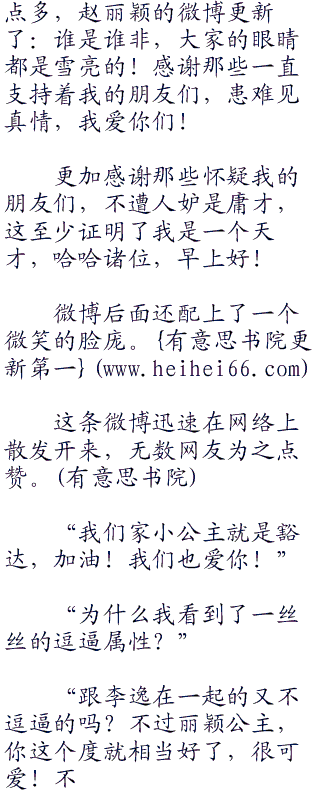 点多，赵丽颖的微博更新
了：谁是谁非，大家的眼睛
都是雪亮的！感谢那些一直
支持着我的朋友们，患难见
真情，我爱你们！
更加感谢那些怀疑我的
朋友们，不遭人妒是庸才，
这至少证明了我是一个天
才，哈哈诸位，早上好！
微博后面还配上了一个
微笑的脸庞。{有意思书院更
新第一}(www.heihei66.com)
这条微博迅速在网络上
散发开来，无数网友为之点
赞。(有意思书院)
“我们家小公主就是豁
达，加油！我们也爱你！”
“为什么我看到了一丝
丝的逗逼属性？”
“跟李逸在一起的又不
逗逼的吗？不过丽颖公主，
你这个度就相当好了，很可
爱！不